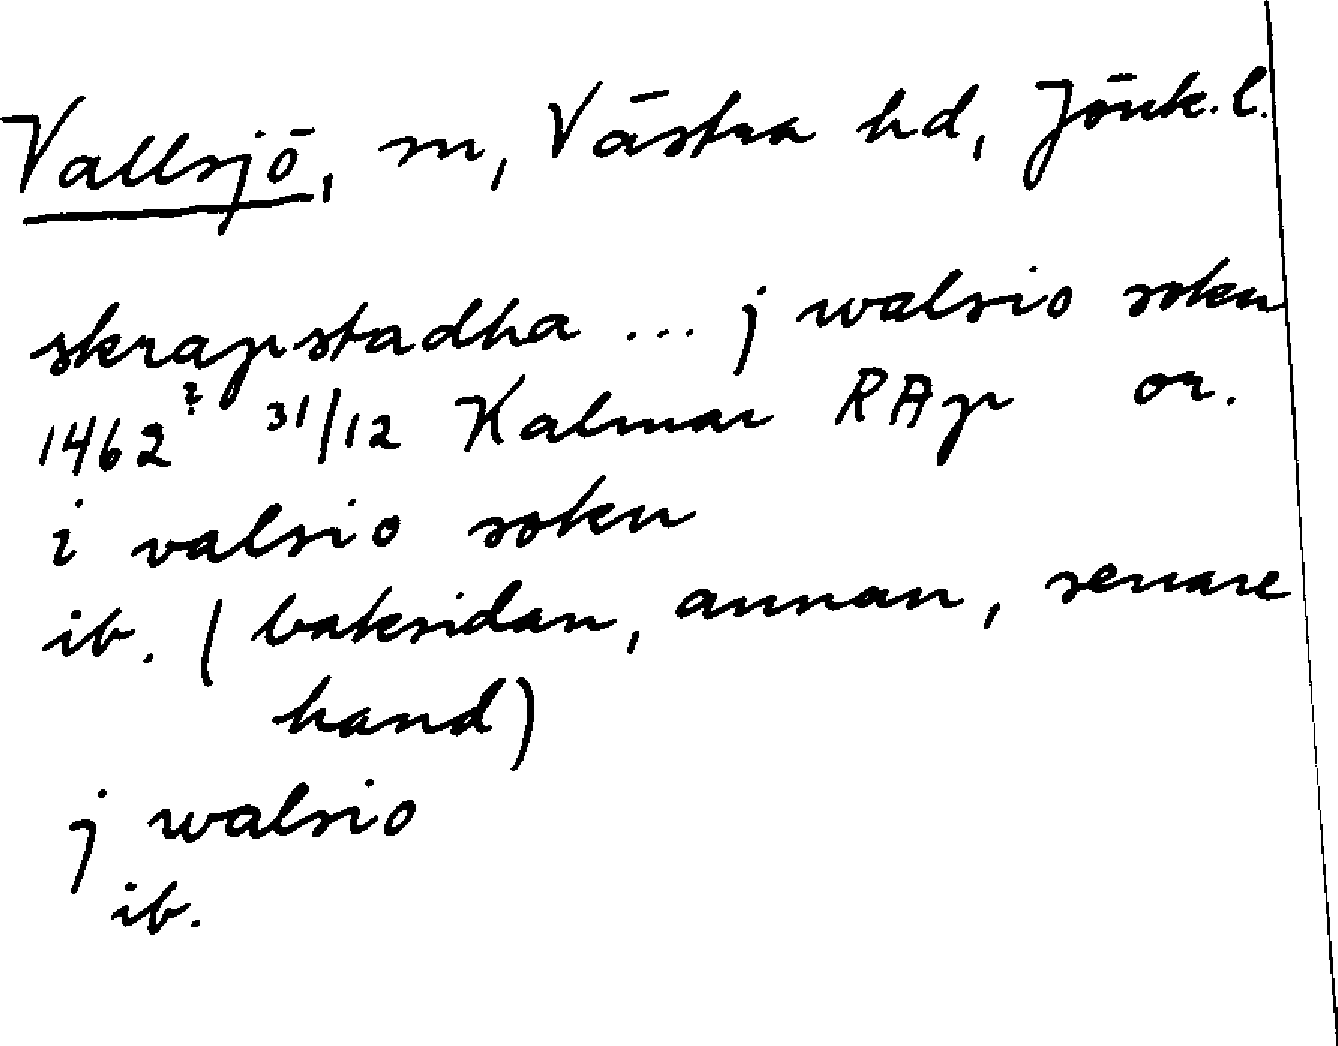 Vallsjö, sn, Västra hd, Jönk. l.
skrapstadha ... j walsio sokn
1462? 31/12 Kalmar RAp or.
i valsio sokn
ib. (baksidan, annan, senare
hand)
j walsio
ib.